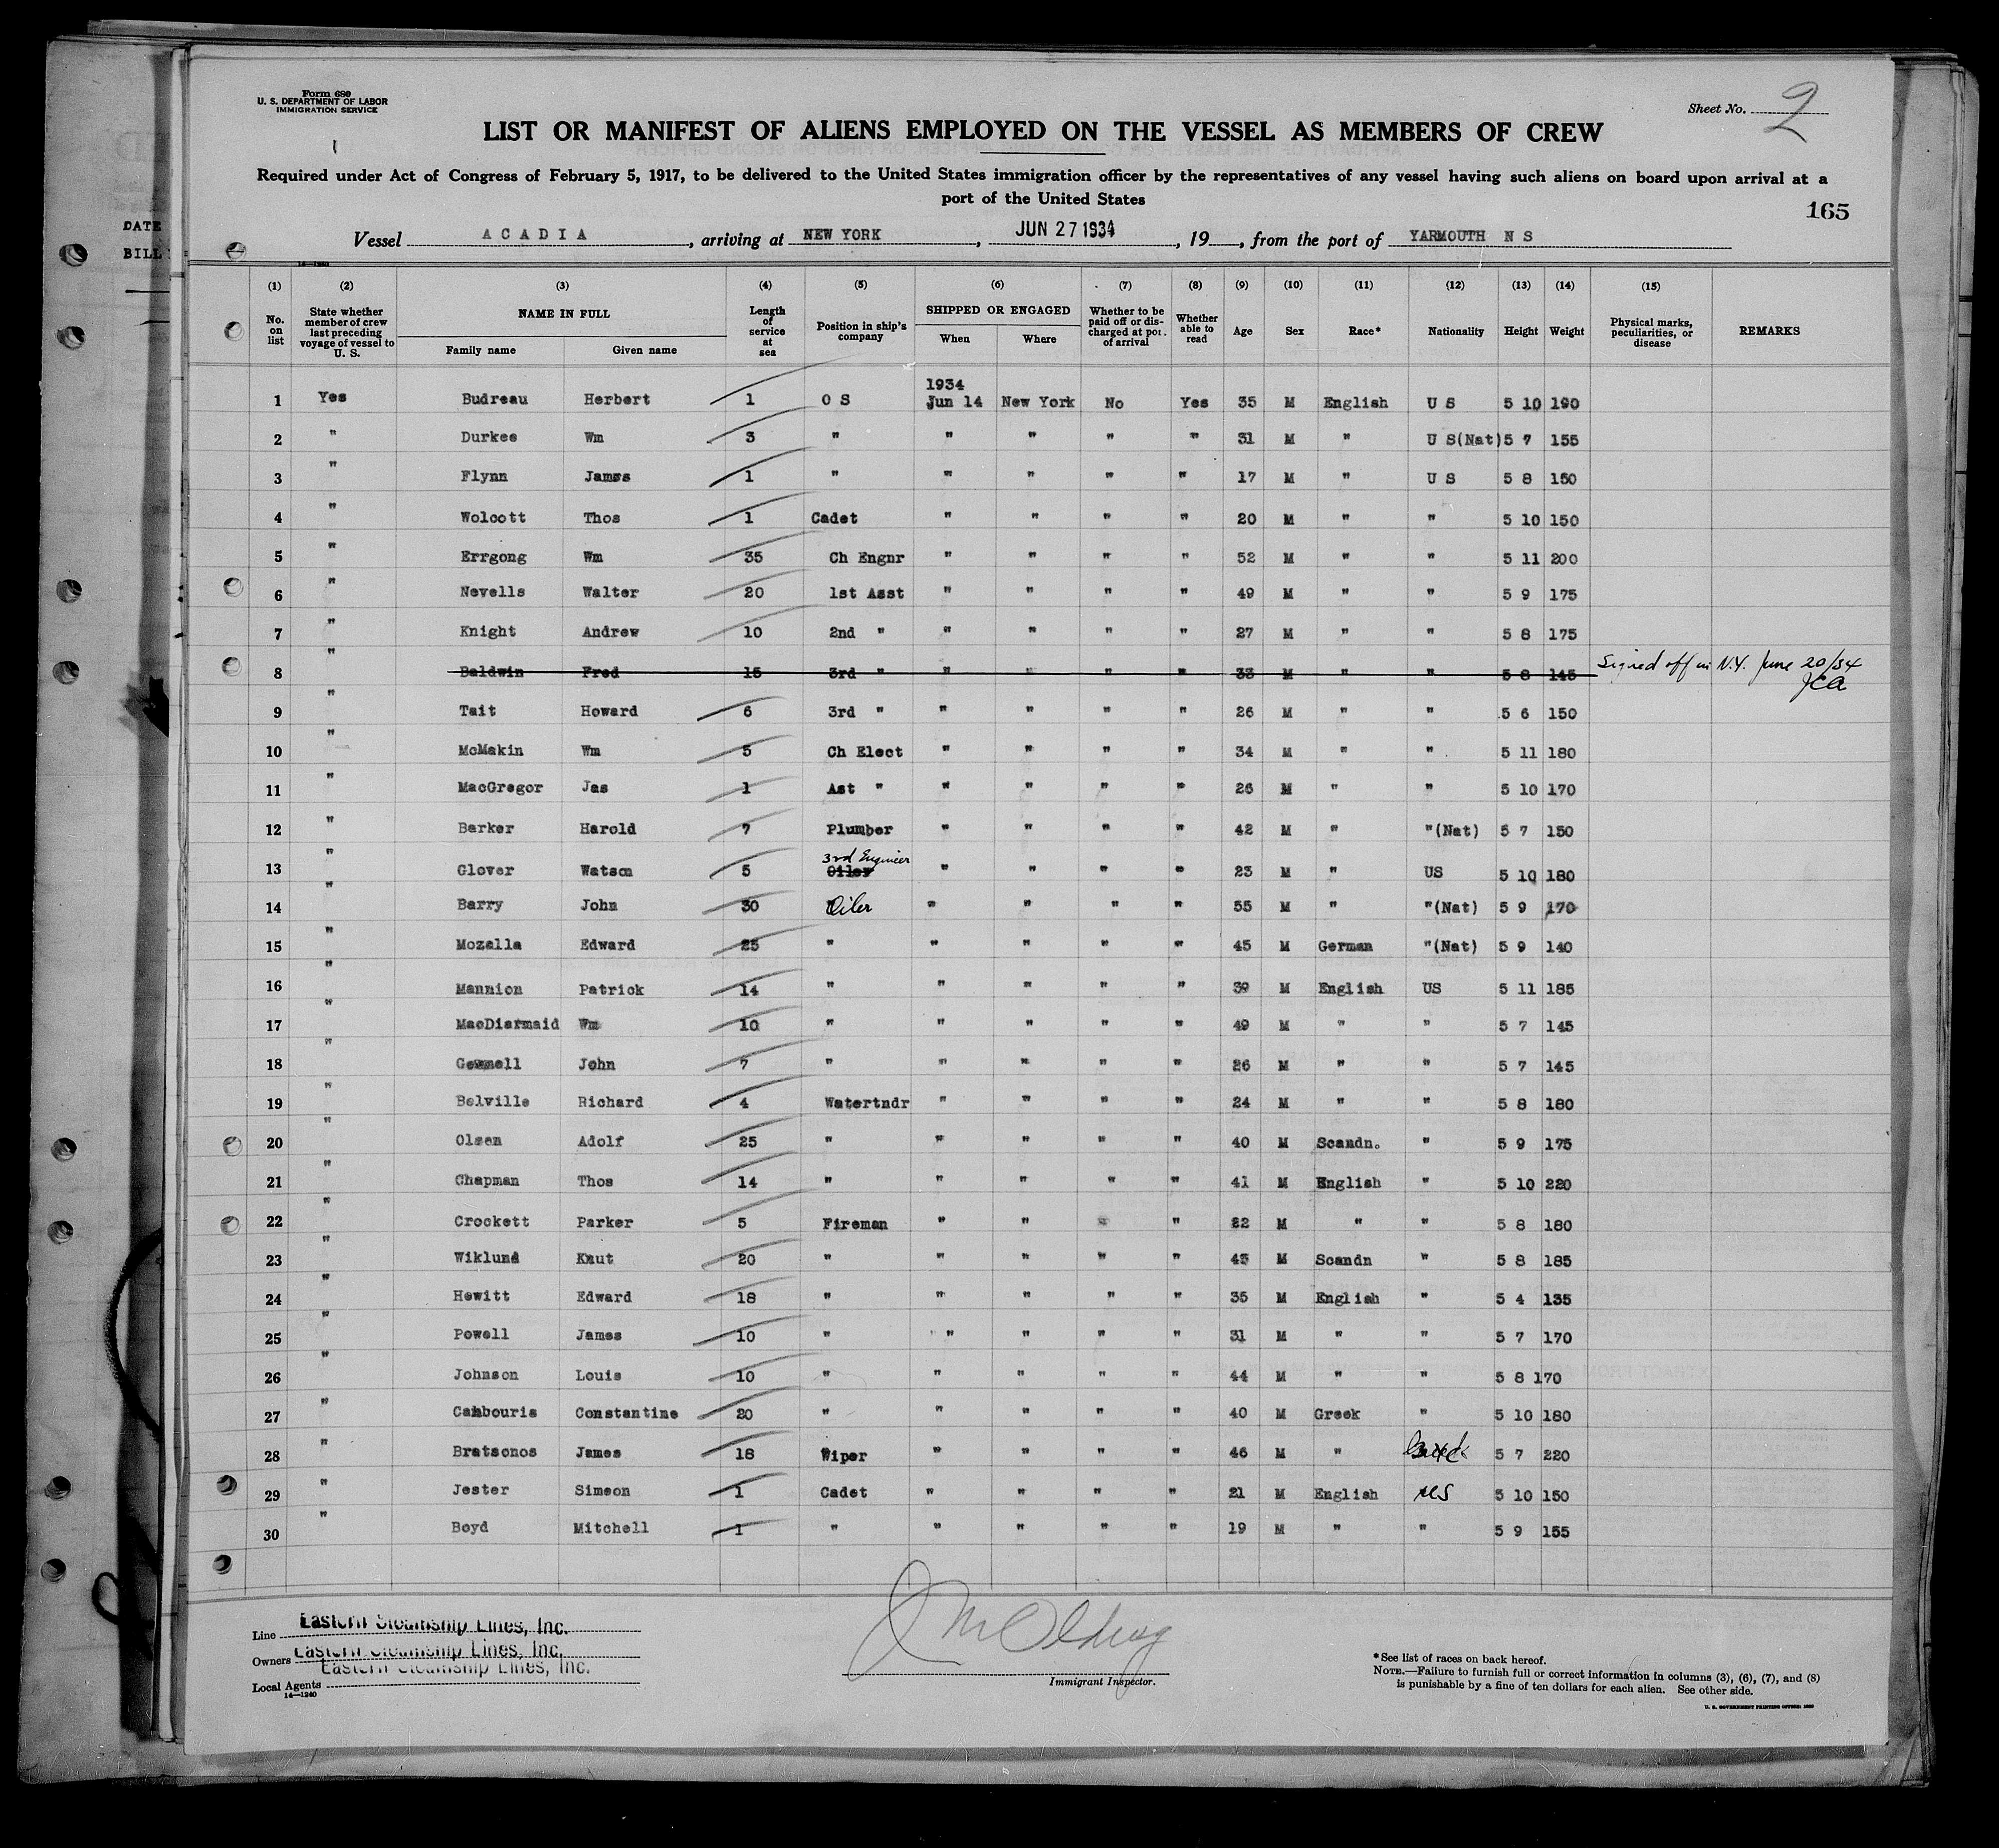 Form 680
U. S. DEPARTMENT OF LABOR
IMMIGRATION SERVICE
Sheet No. 2
LIST OR MANIFEST OF ALIENS EMPLOYED ON THE VESSEL AS MEMBERS OF CREW
Required under Act of Congress of February 5, 1917, to be delivered to the United States immigration officer by the representatives of any vessel having such aliens on board upon arrival at a
port of the United States
165
DATE
BILL
Vessel ACADIA, arriving at NEW YORK, JUN 27 1934, 19, from the port of YARMOUTH N S
(1) (2) (3) (4) (5) (6) (7) (8) (9) (10) (11) (12) (13) (14) (15)
No. on list | State whether member of crew last preceding voyage of vessel to U. S. | NAME IN FULL Family name Given name | Length of service at sea | Position in ship's company | SHIPPED OR ENGAGED When Where | Whether to be paid off or discharged at port of arrival | Whether able to read | Age | Sex | Race* | Nationality | Height | Weight | Physical marks, peculiarities, or disease | REMARKS
1 Yes Budreau Herbert 1 O S 1934 Jun 14 New York No Yes 35 M English U S 5 10 190
2 " Durkee Wm 3 " " " " " 31 M " U S(Nat) 5 7 155
3 " Flynn James 1 " " " " " 17 M " U S 5 8 150
4 " Wolcott Thos 1 Cadet " " " " 20 M " " 5 10 150
5 " Errgong Wm 35 Ch Engnr " " " " 52 M " " 5 11 200
6 " Nevells Walter 20 1st Asst " " " " 49 M " " 5 9 175
7 " Knight Andrew 10 2nd " " " " " 27 M " " 5 8 175
8 " Baldwin Fred 15 3rd " " " " " 33 M " " 5 8 145 Signed off in N.Y. June 20/34 JCA
9 " Tait Howard 6 3rd " " " " " 26 M " " 5 6 150
10 " McMakin Wm 5 Ch Elect " " " " 34 M " " 5 11 180
11 " MacGregor Jas 1 Ast " " " " " 26 M " " 5 10 170
12 " Barker Harold 7 Plumber " " " " 42 M " "(Nat) 5 7 150
13 " Glover Watson 5 3rd Engineer Oiler " " " " 23 M " US 5 10 180
14 " Barry John 30 Oiler " " " " 55 M " "(Nat) 5 9 170
15 " Mozella Edward 25 " " " " " 45 M German "(Nat) 5 9 140
16 " Mannion Patrick 14 " " " " " 39 M English US 5 11 185
17 " MacDiarmaid Wm 10 " " " " " 49 M " " 5 7 145
18 " Gemmell John 7 " " " " " 26 M " " 5 7 145
19 " Belville Richard 4 Watertndr " " " " 24 M " " 5 8 180
20 " Olsen Adolf 25 " " " " " 40 M Scandn. " 5 9 175
21 " Chapman Thos 14 " " " " " 41 M English " 5 10 220
22 " Crockett Parker 5 Fireman " " " " 22 M " " 5 8 180
23 " Wiklund Knut 20 " " " " " 43 M Scandn " 5 8 185
24 " Hewitt Edward 18 " " " " " 35 M English " 5 4 135
25 " Powell James 10 " " " " " 31 M " " 5 7 170
26 " Johnson Louis 10 " " " " " 44 M " " 5 8 170
27 " Cambouris Constantine 20 " " " " " 40 M Greek " 5 10 180
28 " Bratsonos James 18 Wiper " " " " 46 M " Greek 5 7 220
29 " Jester Simeon 1 Cadet " " " " 21 M English US 5 10 150
30 " Boyd Mitchell 1 " " " " " 19 M " " 5 9 155
Line Eastern Steamship Lines, Inc.
Owners Eastern Steamship Lines, Inc.
Local Agents Eastern Steamship Lines, Inc.
14—1240
Immigrant Inspector.
*See list of races on back hereof.
NOTE.—Failure to furnish full or correct information in columns (3), (6), (7), and (8)
is punishable by a fine of ten dollars for each alien. See other side.
U. S. GOVERNMENT PRINTING OFFICE: